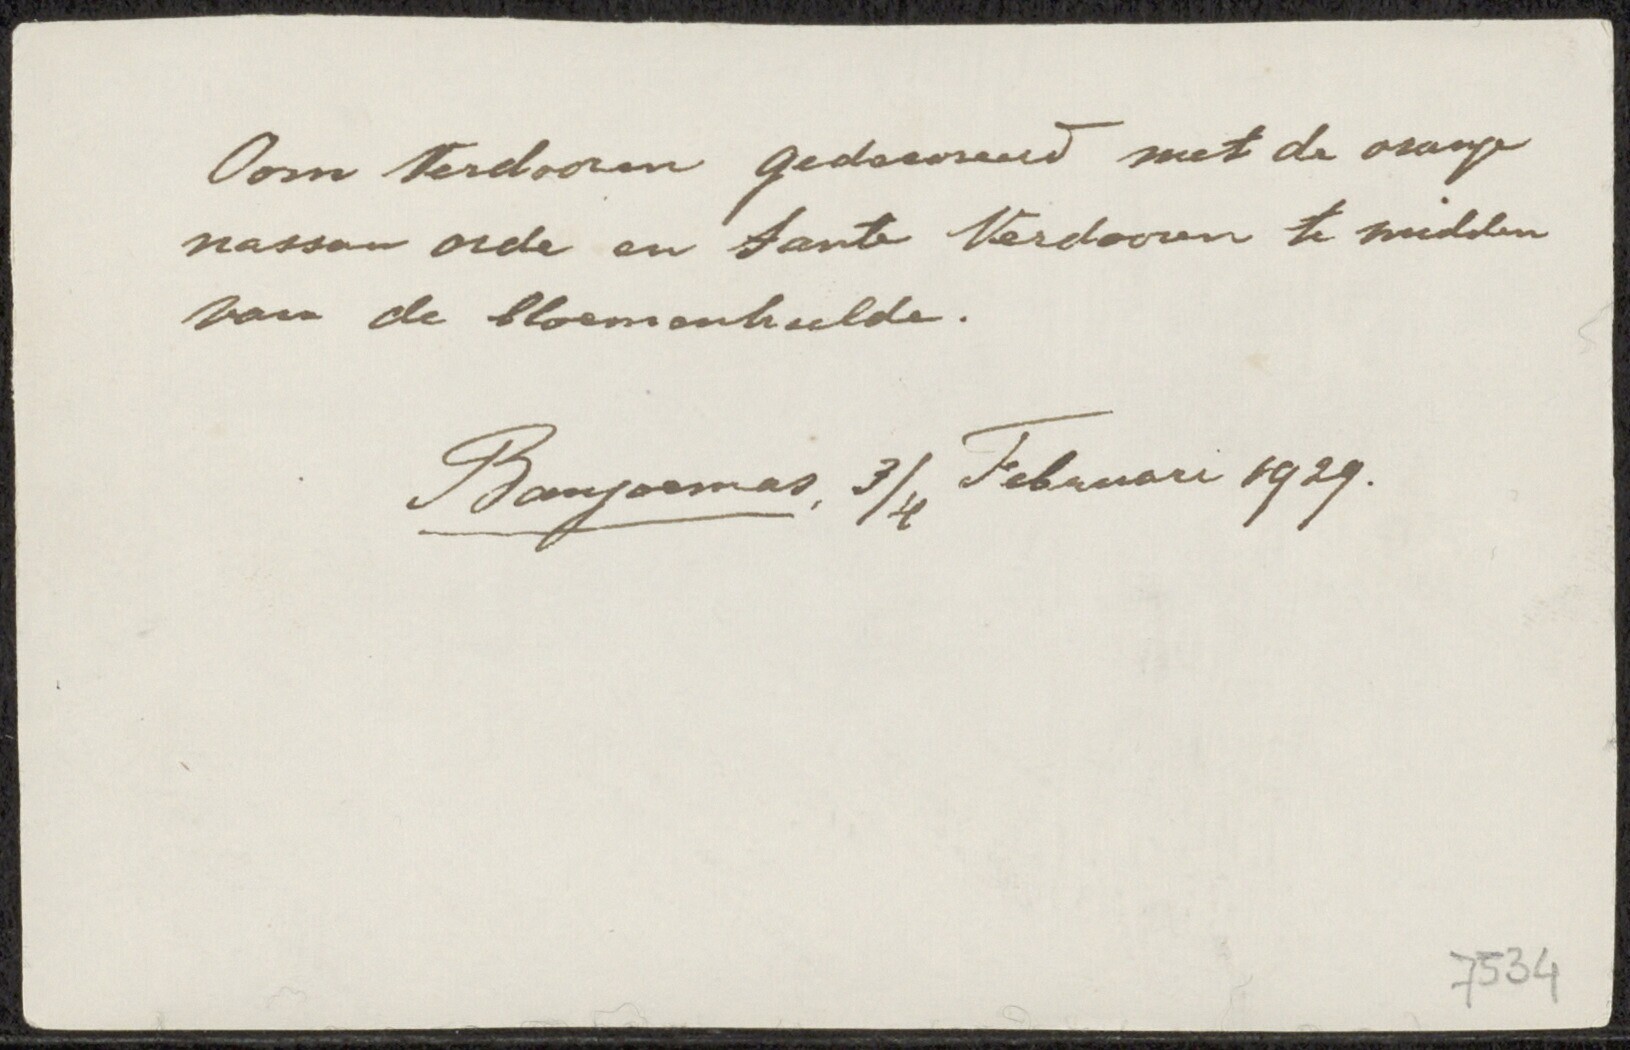 Oom Verdooren gedecoreerd met de oranje
nassau orde en tante Verdooren te midden
van de bloemenhulde.
Banjoemas, 3/4 Februari 1929.
7534